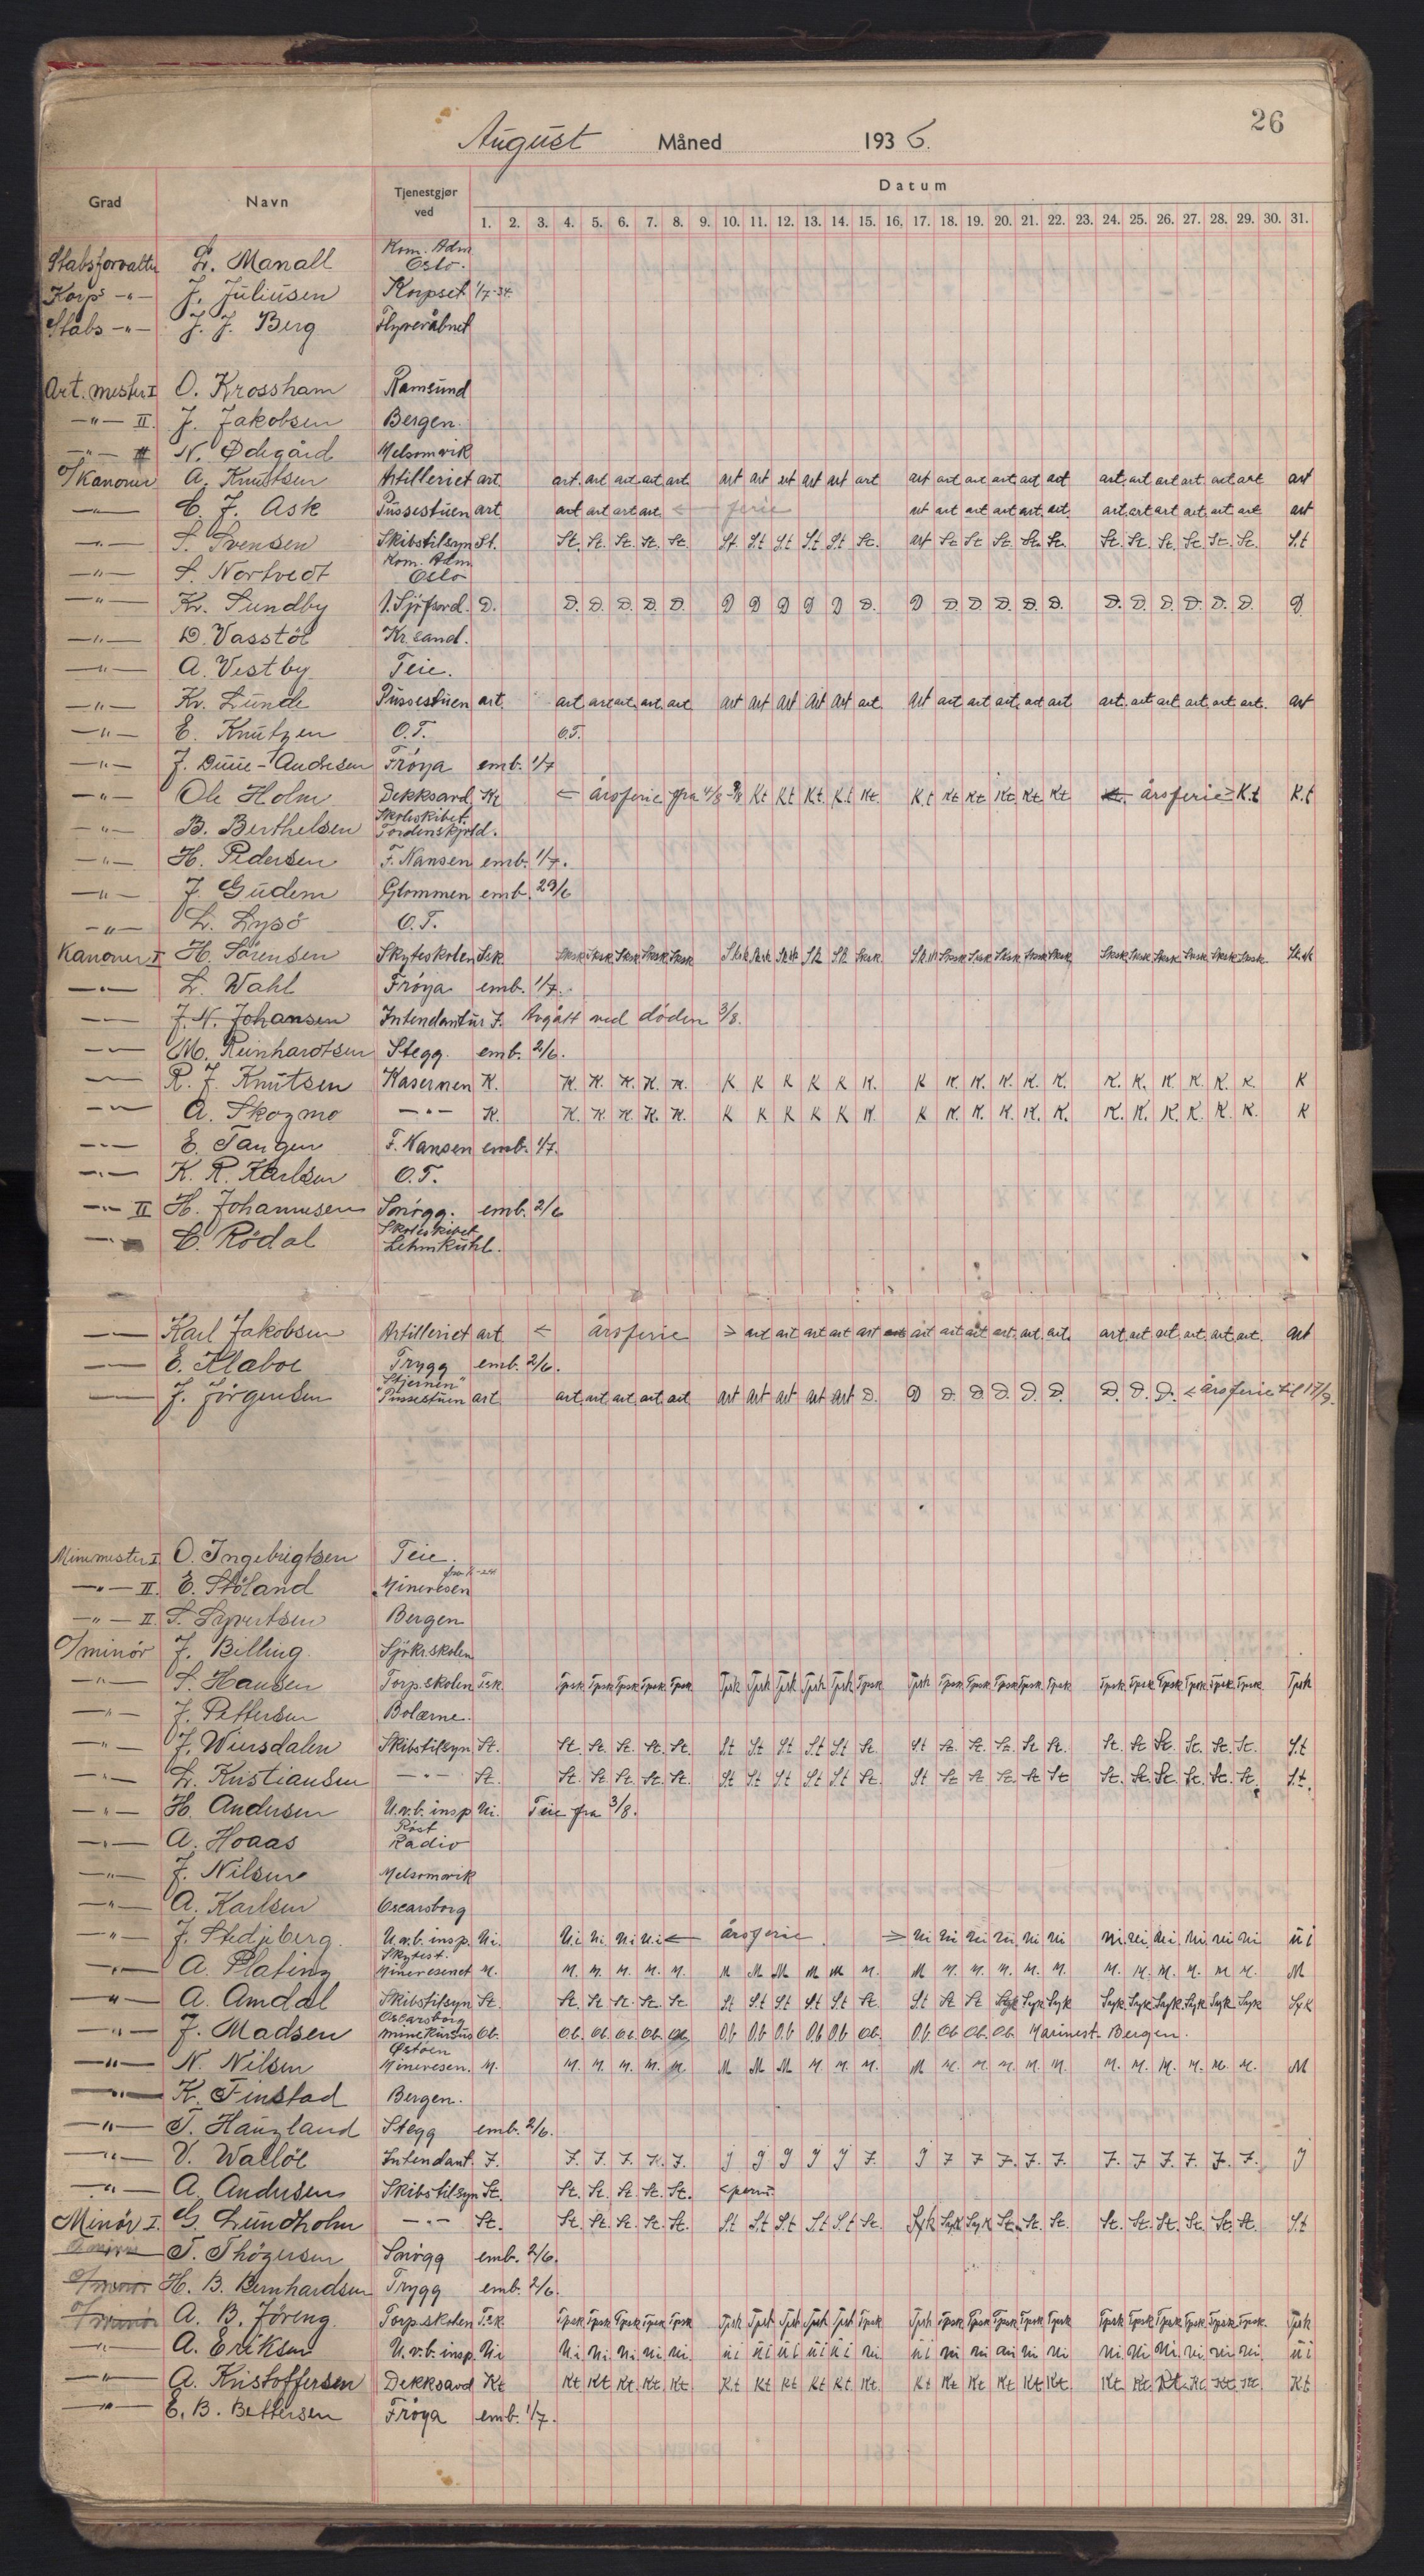 26
August Måned 1936.
Grad Navn Tjenestgjør ved Datum
1. 2. 3. 4. 5. 6. 7. 8. 9. 10. 11. 12. 13. 14. 15. 16. 17. 18. 19. 20. 21. 22. 23. 24. 25. 26. 27. 28. 29. 30. 31.
Stabsforvalter L. Manall Kom. Adm. Oslo.
Korps -"- J. Juliüsen Korpset 1/7-34.
Stabs -"- J. J. Berg Flyvevåbnet
Art. mester I O. Krossham Ramsünd
-"- II. J. Jakobsen Bergen.
-"- II N. Ødegård Melsomvik
O/Kanoner A. Knutsen Artilleriet art. art. art art. art. art. art art art art art art art art art art. art art art. art. art art. art art art
-"- C. J. Ask Püssestüen art art art art art. ← ferie art art art art. art. art. art. art. art art. art. art art
-"- S. Svensen Skibstilsyn St. St. St. St. St. St. St. S.t S.t S.t S.t St. art St. St. St. St. St. St. St. St. St. St. St. S.t
-"- S. Nortvedt Kom. Adm. Oslo
-"- Kr. Sundby 1. Sjöforsv. D. D. D. D. D. D. D D D D D D. D D. D. D. D. D. D. D. D. D. D. D. D.
-"- D. Vasstöl Kr.sand.
-"- A. Vestby Teie.
-"- Kr. Lünde Püssestüen art. art. art art. art. art art art art art art art. art art art art. art art art. art art. art. art art. art
-"- E. Knützen O.T. O.T.
-"- J. Düüe-Andresen Fröya emb. 1/7
-"- Ole Holm Dekksavd. Kt ← årsferie fra 4/8-9/8 K.t K.t K.t. K.t Kt. K.t Kt Kt. Kt. Kt. Kt Kt. årsferie → K.t K.t
-"- B. Berthelsen Skoleskibet Tordenskjold.
-"- H. Pedersen F. Nansen emb. 1/7.
-"- J. Güdem Glommen emb. 29/6
-"- L. Lysö O.T.
Kanoner I H. Sörensen Skyteskolen Sk. Sksk Sksk Sksk Sksk Sksk Sksk Sksk Sksk Sk Sk Sksk. Sksk Sksk Sksk Sksk Sksk Sksk Sksk Sksk Sksk Sksk Sksk Sksk Sksk
-"- L. Wahl Fröya emb. 1/7.
-"- J. N. Johansen Intendantür J. Avgått ved döden 3/8.
-"- M. Reinhardtsen Stegg. emb. 2/6.
-"- R. J. Knütsen Kasernen K. K. K. K. K. K. K K K K K K. K K. K. K. K. K. K. K. K. K. K. K. K
-"- A. Skogmo -"- K. K. K. K. K. K. K K K K K K. K K. K. K. K. K. K. K. K. K. K. K. K
-"- E. Tangen F. Nansen emb. 1/7.
-"- K. R. Karlsen O.T.
-"- II H. Johannesen Snögg. emb. 2/6
-"- C. Rödal Skoleskibet Lehmkühl.
-"- Karl Jakobsen Artilleriet art ← årsferie → art art art art art art art art art. art. art. art. art art. art. art. art. art
-"- E. Klaboe Trygg emb. 2/6.
-"- J. Jörgensen "Stjernen" Püssestüen art art. art. art. art. art art art art art art D. D D. D D. D. D. D. D. D. ← årsferie til 17/9.
Minemester I O. Ingebrigtsen Teie.
-"- II. E. Stöland Minevesen
-"- II. S. Syvertsen Bergen
O/minör J. Billing. Sjökr.skolen
-"- S. Hansen Torp. skolen T.sk. Tpsk Tpsk Tpsk Tpsk Tpsk Tpsk Tpsk Tpsk Tpsk Tpsk Tpsk Tpsk Tpsk Tpsk Tpsk Tpsk Tpsk Tpsk Tpsk Tpsk Tpsk Tpsk Tpsk Tpsk
-"- J. Pettersen Bolærne.
-"- J. Wiersdalen Skibstilsyn St. St. St. St. St. St. S.t St. St. S.t S.t St. St St. St. St. St St. St. St St. St. St. St. S.t
-"- L. Kristiansen -"- St. St. St. St. St. St. St St St St St St. St St St St St St St. St. St. St. St. St. S.t.
-"- H. Andersen U.v.b. insp Ui. Teie fra 3/8.
-"- A. Hoaas Röst Radio
-"- J. Nilsen Melsomvik
-"- A. Karlsen Oscarsborg
-"- J. Stedjeberg. U.v.b. insp. Ui. U.i Ui. Ui U.i ← årsferie. → Ui Ui Ui Ui Ui Ui Ui. Ui. Ui. Ui. Ui Ui Ui
-"- A. Plating Skytest. Minevesenet M. M. M. M. M. M. M M M M M M. M M. M. M. M. M. M. M. M. M. M M. M
-"- A. Amdal Skibstilsyn St. St. St St. St. St. St S.t St St St St. St St St Syk Syk Syk Syk Syk Syk Syk Syk Syk Syk
-"- J. Madsen Oscarsborg minekursus Ob. Ob. Ob. Ob. Ob. Ob. O.b O.b O.b O.b O.b Ob. O.b Ob Ob. Ob. Marinest. Bergen.
-"- N. Nilsen Østöen Minevesen. M. M. M. M. M. M. M M M M. M. M. M M. M. M. M. M. M. M. M. M. M. M. M
-"- K. Finstad Bergen.
-"- T. Haugland Stegg emb. 2/6.
-"- V. Wallöe Intendant. J. J. J. J. J. J. J J J J J J. J J J J. J. J. J. J. J. J. J. J. J
-"- A. Andersen Skibstilsyn St. St. St. St. St. St. ← perm.
Minör I. G. Lündholm -"- St. St. St. St. St. St. S.t S.t S.t S.t S.t St. Syk Syk Syk St. St. St. St. St. St. St. St. St. S.t
-"- T. Thögersen Snögg emb. 2/6.
O/minör H. B. Bernhardsen Trygg emb. 2/6.
O/minör A. B. Jöreng. Torp.skolen T.sk. Tpsk Tpsk Tpsk Tpsk Tpsk Tpsk Tpsk Tpsk Tpsk Tpsk Tpsk Tpsk Tpsk Tpsk Tpsk Tpsk Tpsk Tpsk Tpsk Tpsk Tpsk Tpsk Tpsk. Tpsk
-"- A. Eriksen U.v.b. insp. Ui Ui. Ui. Ui. Ui. Ui. Ui Ui Ui Ui Ui Ui. Ui Ui Ui Ui Ui Ui Ui. Ui Ui. Ui Ui Ui. Ui
-"- A. Kristoffersen Dekksavd Kt Kt Kt Kt. Kt. Kt. K.t Kt Kt Kt K.t. Kt. K.t Kt Kt Kt Kt Kt. Kt Kt. Kt. Kt. Kt. Kt. Kt
-"- E. B. Bettersen Fröya emb. 1/7.